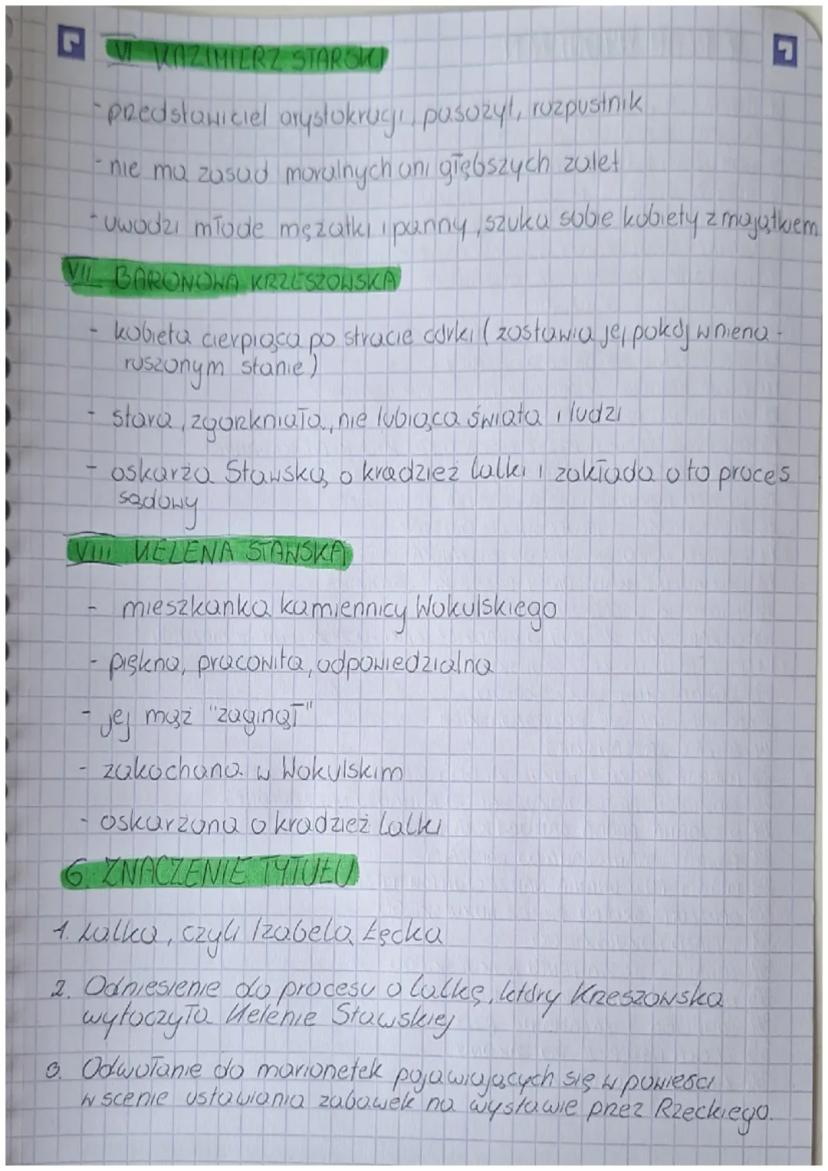 VI KAZIMIERZ STARSKI
- przedstawiciel arystokracji, pasożyt, rozpustnik
- nie ma zasad moralnych ani głębszych zalet
- uwodzi młode mężatki i panny, szuka sobie kobiety z majątkiem
VII BARONOWA KRZESZOWSKA
- kobieta cierpiąca po stracie córki (zostawia jej pokój w niena-
ruszonym stanie)
- stara, zgorzkniała, nie lubiąca świata i ludzi
- oskarża Stawską o kradzież lalki i zakłada o to proces
sądowy
VIII HELENA STAWSKA
- mieszkanka kamiennicy Wokulskiego
- piękna, pracowita, odpowiedzialna
- jej mąż "zaginął"
- zakochana w Wokulskim
- oskarżona o kradzież lalki
6. ZNACZENIE TYTUŁU
1. Lalka, czyli Izabela Łęcka
2. Odniesienie do procesu o lalkę, który Krzeszowska
wytoczyła Helenie Stawskiej
3. Odwołanie do marionetek pojawiających się w powieści
w scenie ustawiania zabawek na wystawie przez Rzeckiego.